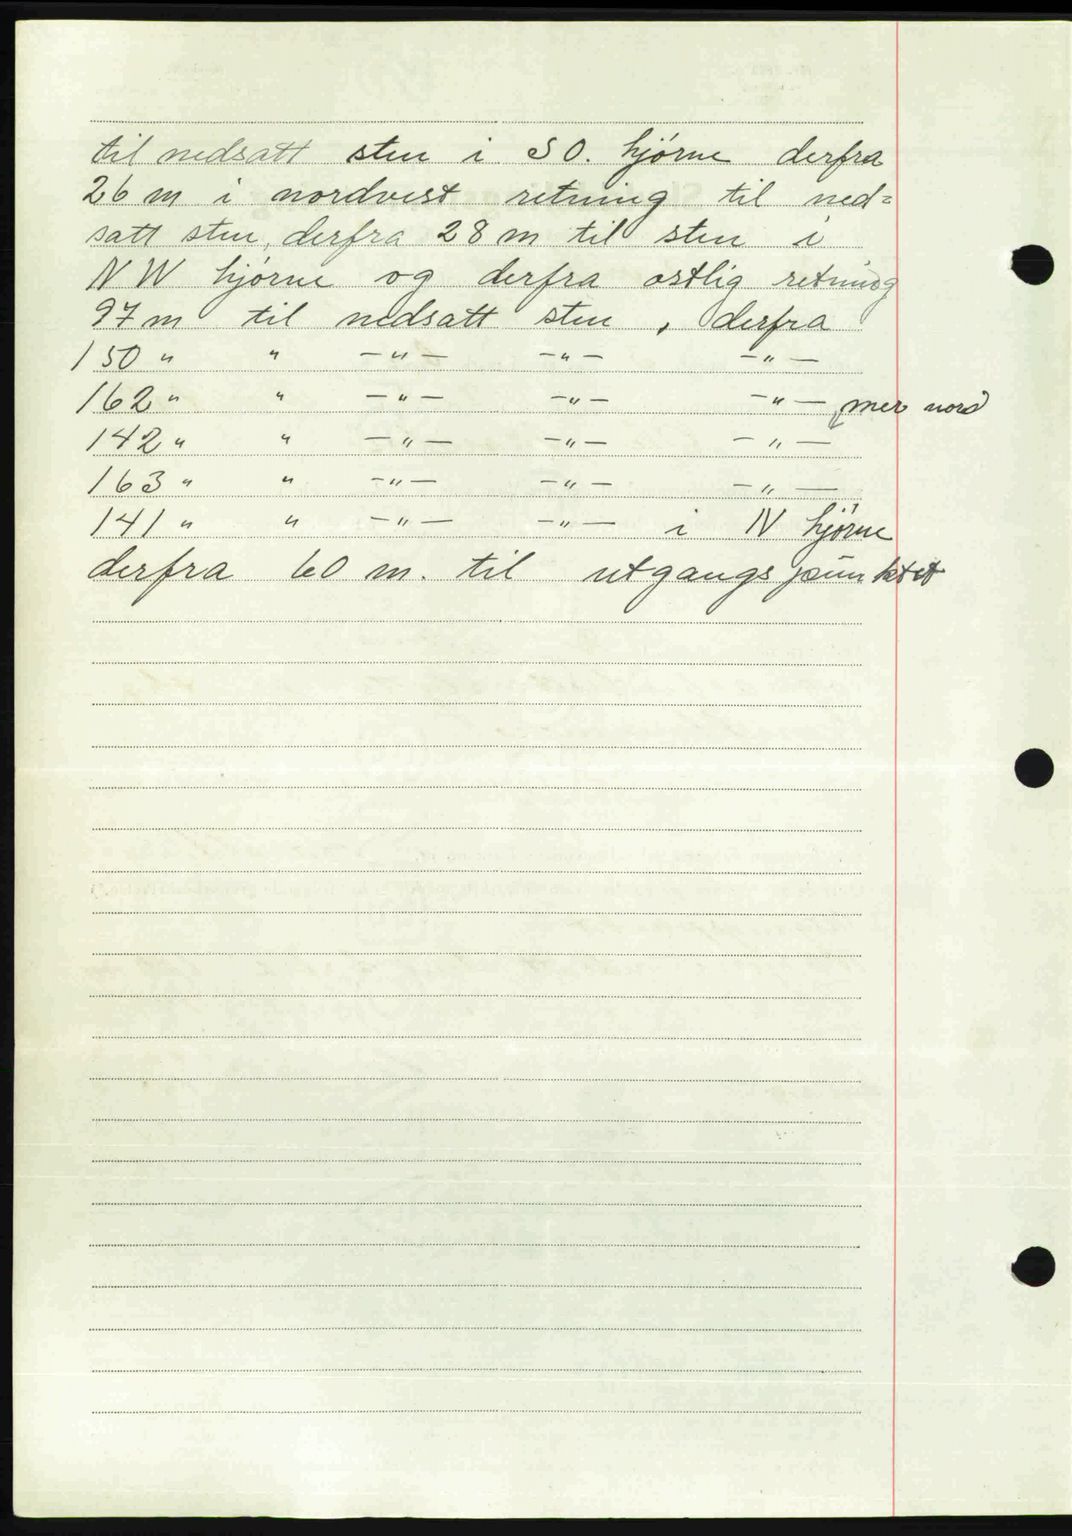 til nedsatt sten i S O. hjørne derfra
26 m i nordvest retning til ned=
satt sten, derfra 28 m til sten i
N W hjørne og derfra ostlig retning
97 m til nedsatt sten, derfra
150 " " —"— —"— —"—
162 " " —"— —"— —"— mer nord
142 " " —"— —"— —"—
163 " " —"— —"— —"—
141 " " —"— —"— i N hjørne
derfra 60 m. til utgangspunktet